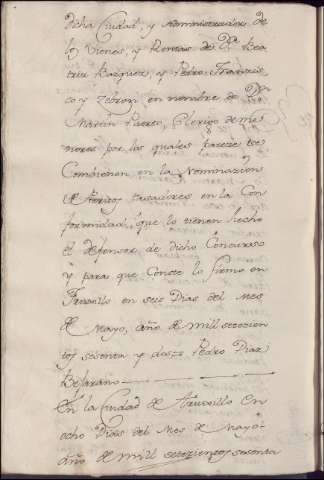 dicha Ciudad, y Administrador de
los Vienes, y Rentas de Dª Bea
triz Bazquez, y Pedro Francis
co y Zebron en nombre de Dn
Martin Puerto, Clerigo de me
nores por los quales pareze se
Combienen en la Nominazion
de Peritos tasadores en la Con
formidad, que lo tienen hecho
el defensor de dicho Concurso
y para que Conste lo firmo en
Truxillo en seis Dias del Mes
de Mayo, año de mill setezien
tos sesenta y dos= Pedro Diaz
Bejarano
En la Ciudad de Truxillo En
ocho Dias del Mes de Mayo
año de mill setezientos sesenta